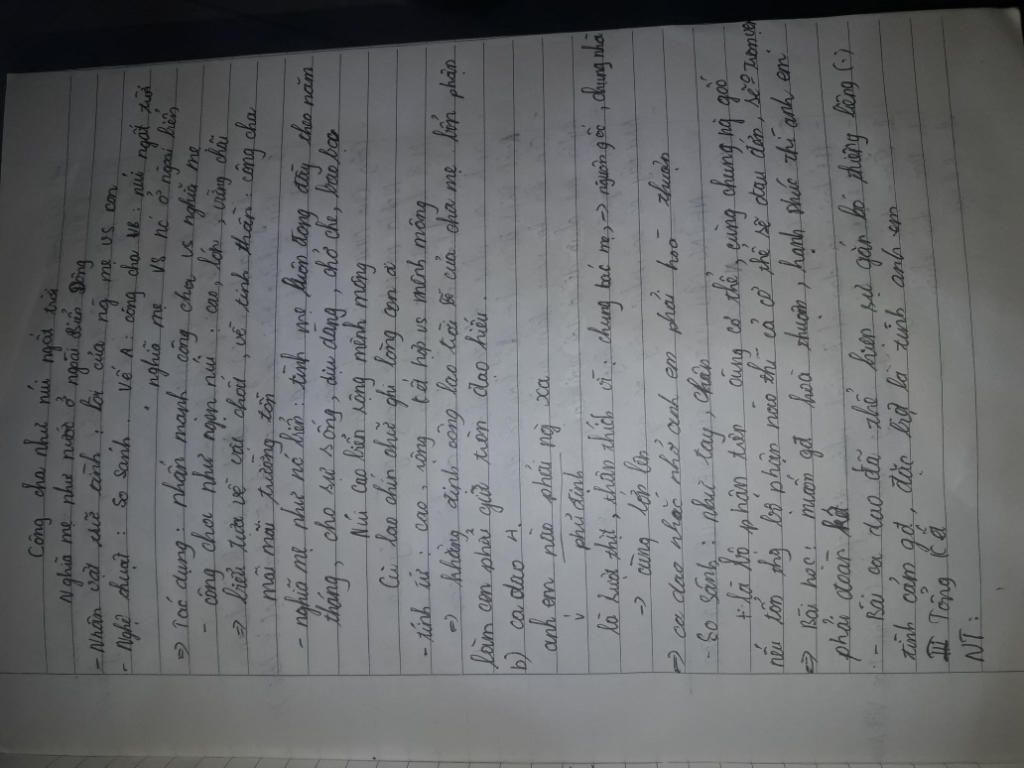 Công cha như núi ngất trời
Nghĩa mẹ như nước ở ngoài biển Đông
- Nhân vật trữ tình: lời của ng mẹ vs con
- Nghệ thuật: so sánh. Vế A: công cha vế: núi ngất trời
nghĩa mẹ vs nc ở ngoài biển
=> Tác dụng: nhấn mạnh công cha, vs nghĩa mẹ
- công cha như ngọn núi: cao, lớn, vững chãi
=> biểu tựa về vật chất, về tinh thần: công cha
mãi mãi trường tồn
- nghĩa mẹ như nc biển: tình mẹ luôn đong đầy theo năm
tháng, cho sự sống, dịu dàng, chở che, bao bao
Núi cao biển rộng mênh mông
Cù lao chín chữ ghi lòng con ơi
- tính từ: cao, rộng kết hợp vs mênh mông
=> khẳng định công lao trời bể của cha mẹ bổn phận
làm con phải giữ tròn đạo hiếu.
b) ca dao 4
anh em nào phải ng xa
phủ định
là: ruột thịt, thân thích vì: chung bác mẹ, => nguồn gốc, chung nhà
-> cùng lớn lên
=> ca dao nhắc nhở anh em phải hoà - thuận
- So sánh: như tay, chân
+ là bộ phận trên cùng cơ thể, cùng chung ng gốc
nếu tổn hg bộ phận nào thì cả cơ thể sẽ đau đớn,
=> Bài học: muốn gđ hoà thuận, hạnh phúc thì anh em
phải đoàn kết
- Bài ca dao đã thể hiện sự gắn bó thiêng liêng (:)
tình cảm gđ, đặc biệt là tình anh em
III Tổng kết
NT: